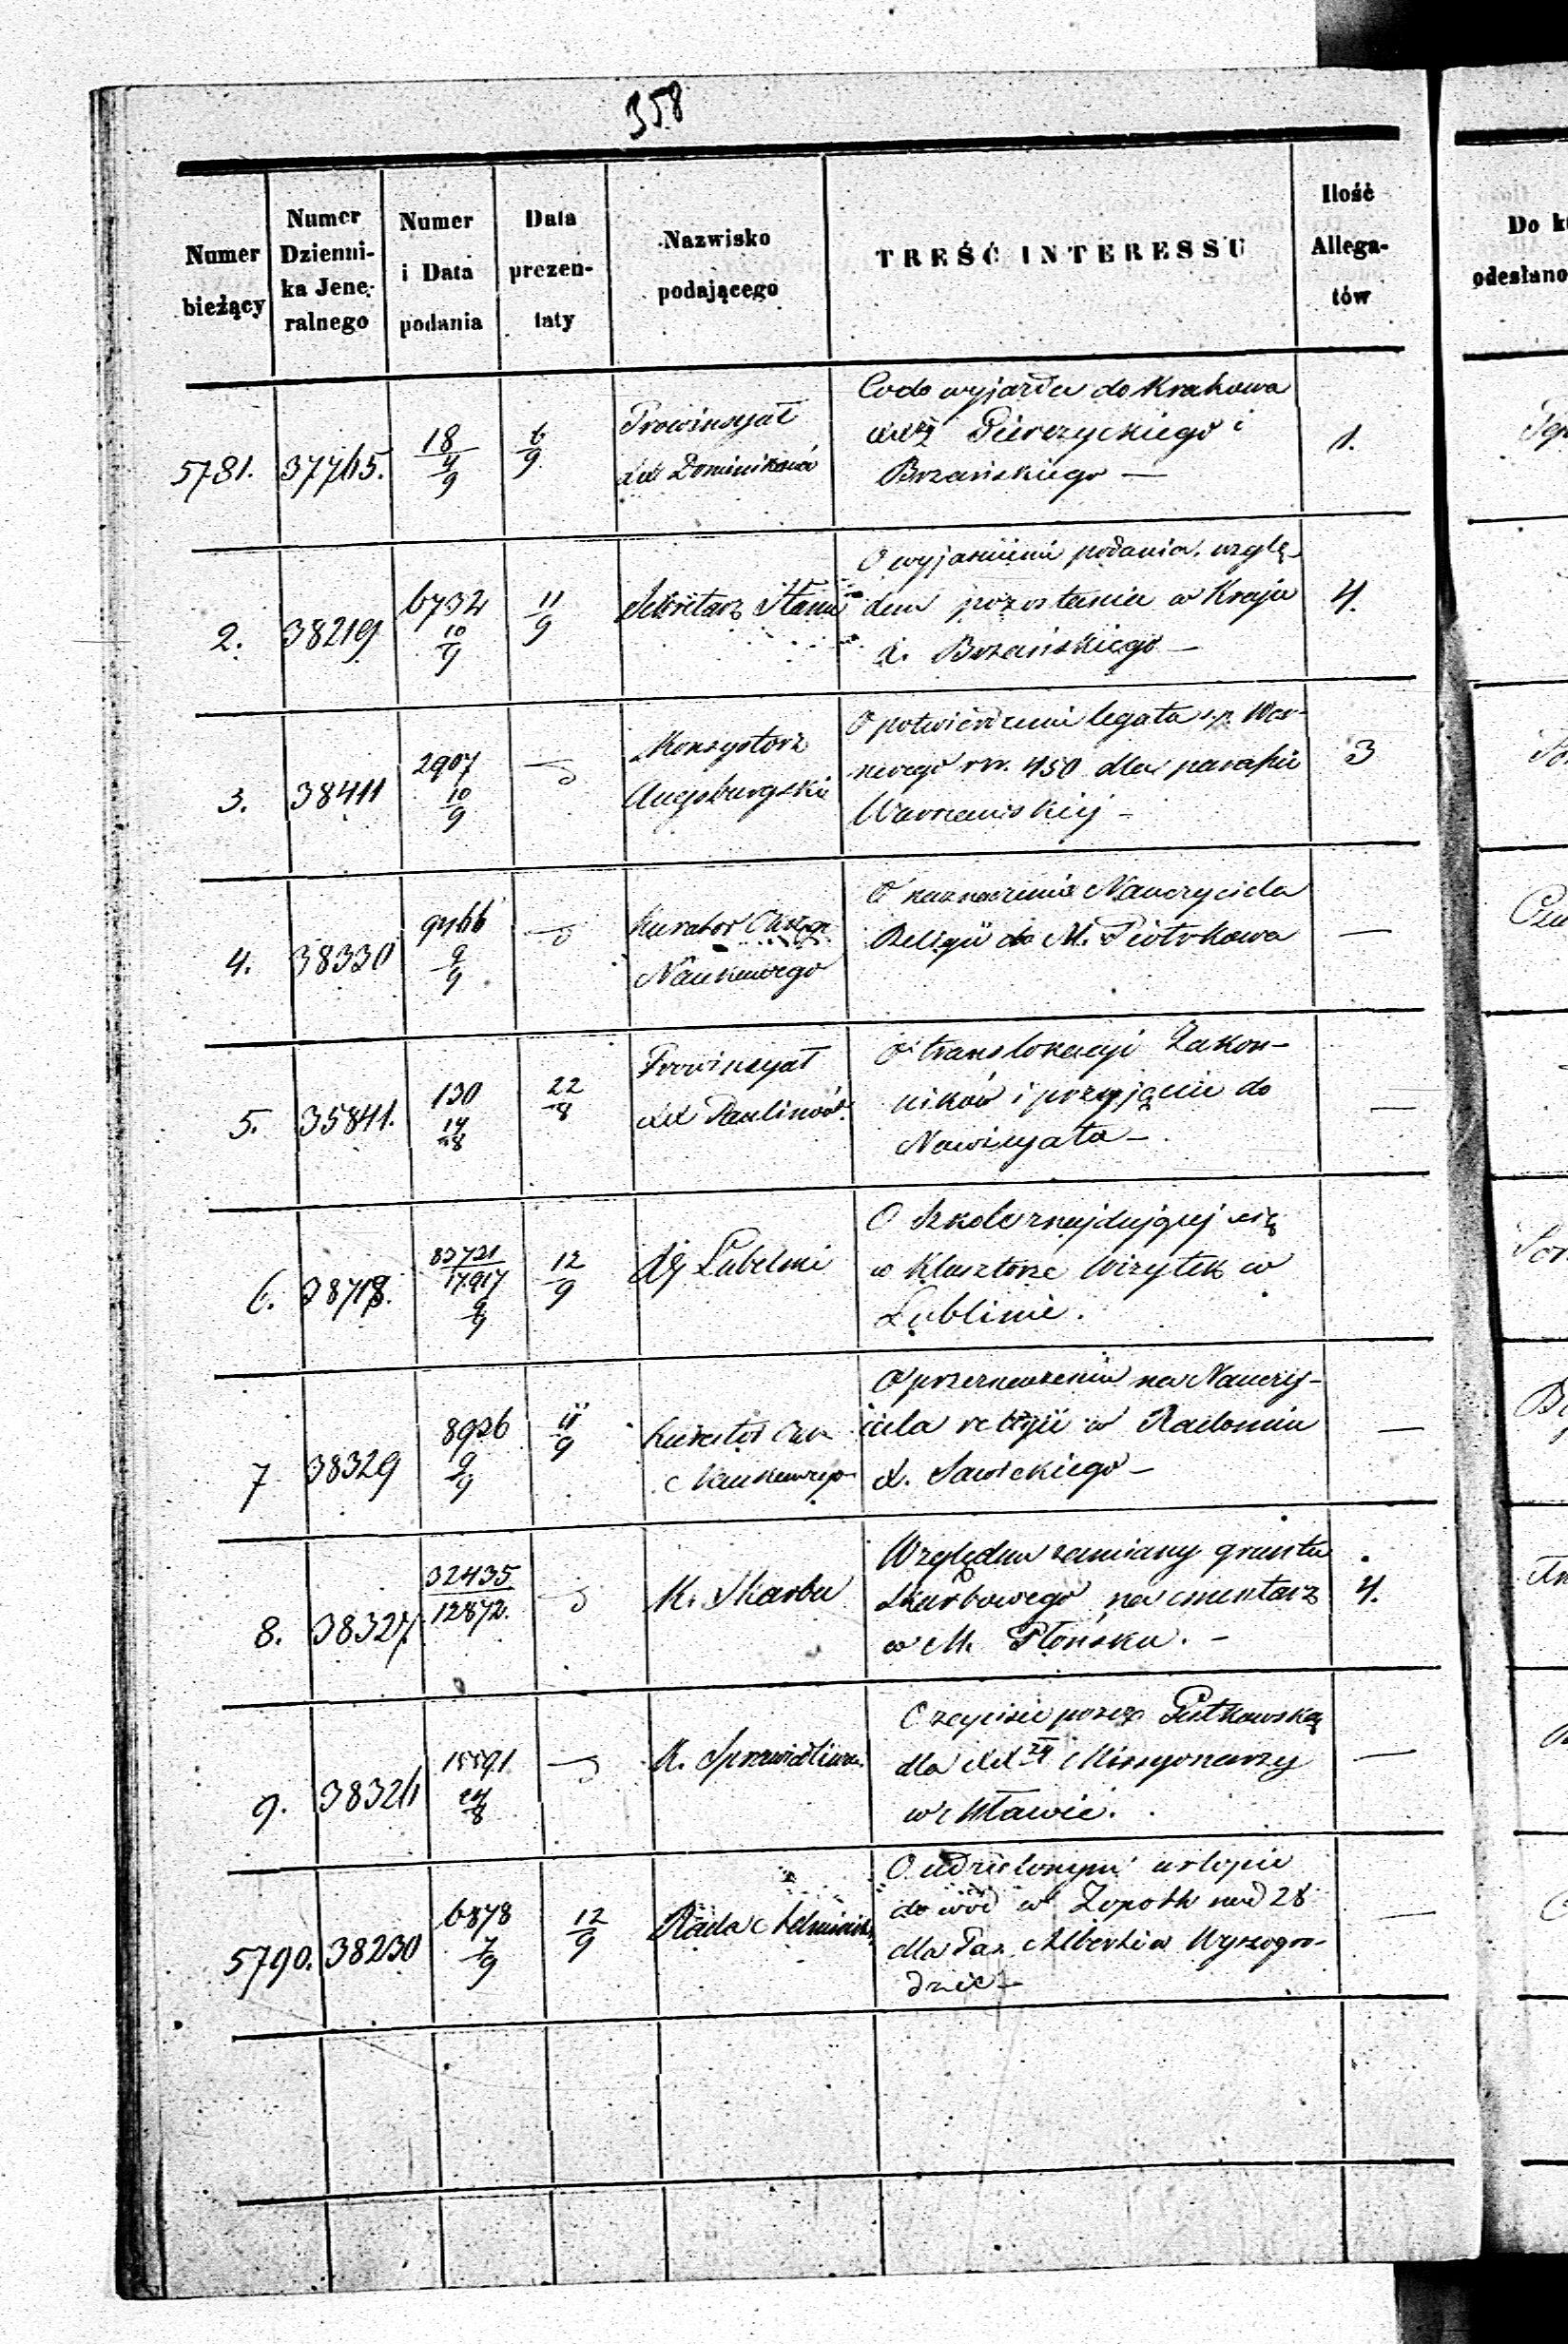 358
Numer bieżący
Numer Dzienni-ka Jene-ralnego
Numer i Data podania
Data prezen-taty
Nazwisko podającego
TREŚĆ INTERESSU
Ilość Allega-tów
Do k
odesłano
5781. 37765. 18 4/9 6/9
Prowincyał
XX Dominikanów
Co do wyjazdu do Krakowa
Pierzyckiego i
Brzańskiego —
1.
2. 38219 6732 10/9 11/9
Sekretarz Stanu
O wyjaśnienie podania wzglę-
dem pozostania w Kraju
X. Brzańskiego —
4.
3. 38411 2907 10/9
Konsystorz
Augsburgski
O potwierdzenie legatu ś.p. Wer-
nerego rsr. 450 dla parafii
Warszawskiej —
3
4. 38330 9466 9/9
Kurator Okręgu
Naukowego
O naznaczenie Nauczyciela
Religii do M. Piotrkowa
—
5. 35841. 130 14/8 22/8
Prowincyał
XX Paulinów
O translokacyi Zakon-
ników i przyjęcie do
Nowicyatu —
—
6. 38718. 83721/17917 9/9 12/9
RG Lubelski
O Szkole znajdującej się
w Klasztorze Wizytek w
Lublinie.
7 38329 8926 9/9 11/9
Kurator Okr
Naukowego
O przeznaczeniu na Nauczy-
ciela religii w Radomiu
X. Sawickiego —
—
8. 38327. 32435/12872.
K. Skarbu
Względem zamiany gruntu
skarbowego na cmentarz
w M. Płońsku. —
4.
9. 38326 15591 24/8
K. Sprawiedliwo
O zapisie przez Piotkowską
dla XX Missyonarzy
w Mławie.
—
5790. 38230 6878 7/9 12/9
Rada Administr
O udzielonym urlopie
do wód w Zopoth na d 28
dla Pas. Alberti w Wyszogro-
dzie —
—